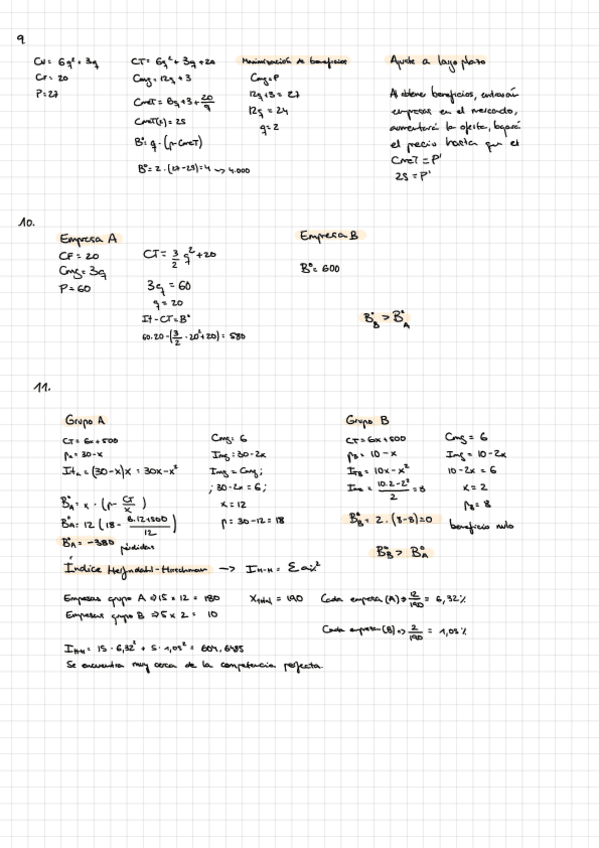 9
CV = 6q² + 3q
CF = 20
P = 27
CT = 6q² + 3q + 20
Cmg = 12q + 3
CmeT = 6q + 3 + 20/q
CmeT(2) = 25
Bº = q · (p - CmeT)
Bº = 2 · (27 - 25) = 4 → 4.000
Maximización de beneficios
Cmg = P
12q + 3 = 27
12q = 24
q = 2
Ajuste a largo plazo
Al obtener beneficios, entrarán
empresas en el mercado,
aumentará la oferta, bajará
el precio hasta que el
CmeT = P'
25 = P'
10.
Empresa A
CF = 20
Cmg = 3q
P = 60
CT = 3/2 q² + 20
3q = 60
q = 20
It - CT = Bº
60·20 - (3/2 · 20² + 20) = 580
Empresa B
Bº = 600
Bº_B > Bº_A
11.
Grupo A
CT = 6x + 500
p_A = 30 - x
It_A = (30 - x)x = 30x - x²
Bº_A = x · (p - CT/x)
Bº_A = 12 (18 - 6·12+500/12)
Bº_A = -380 pérdidas
Cmg = 6
Img = 30 - 2x
Img = Cmg;
; 30 - 2x = 6;
x = 12
p = 30 - 12 = 18
Grupo B
CT = 6x + 500
p_B = 10 - x
It_B = 10x - x²
= 10·2 - 2²/2 = 8
Bº_B = 2 · (8 - 8) = 0
Cmg = 6
Img = 10 - 2x
10 - 2x = 6
x = 2
p_B = 8
beneficio nulo
Bº_B > Bº_A
Índice Herfindahl-Hirschman → I_H-H = Σ ai²
Empresas grupo A ⇒ 15 x 12 = 180
Empresas grupo B ⇒ 5 x 2 = 10
X_total = 190
Cada empresa (A) ⇒ 12/190 = 6,32%
Cada empresa (B) ⇒ 2/190 = 1,05%
I_HH = 15 · 6,32² + 5 · 1,05² = 604,6485
Se encuentra muy cerca de la competencia perfecta.